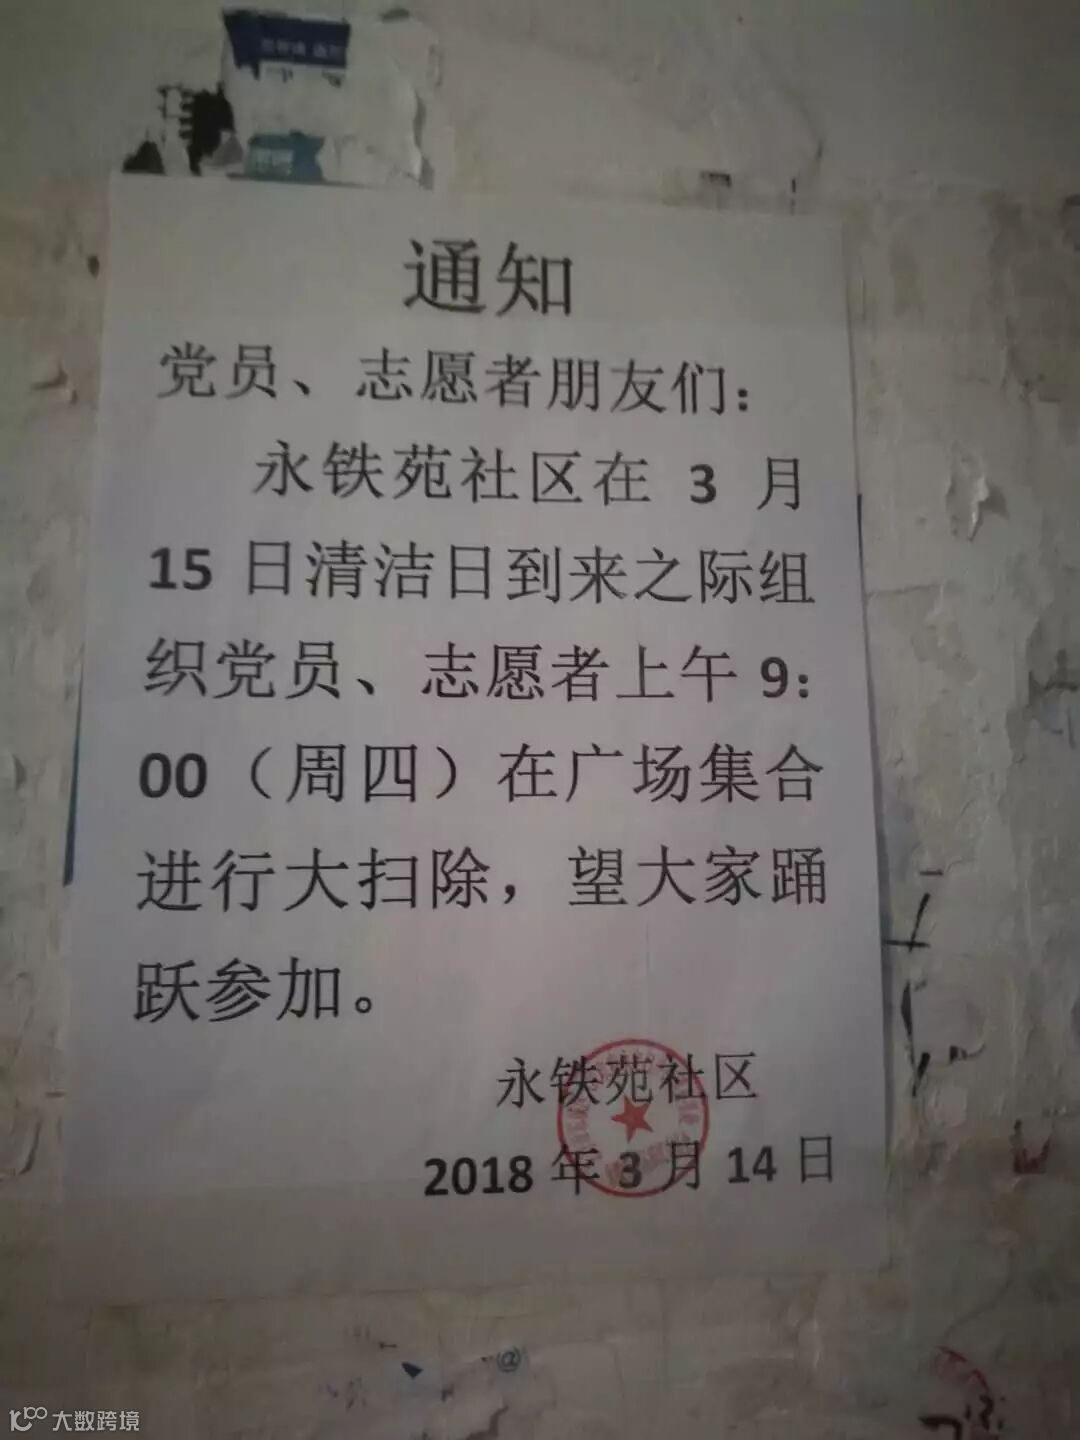 通知
党员、志愿者朋友们：
永铁苑社区在 3 月
15 日清洁日到来之际组
织党员、志愿者上午 9：
00（周四）在广场集合
进行大扫除，望大家踊
跃参加。
永铁苑社区
2018 年 3 月 14 日
@
大数跨境